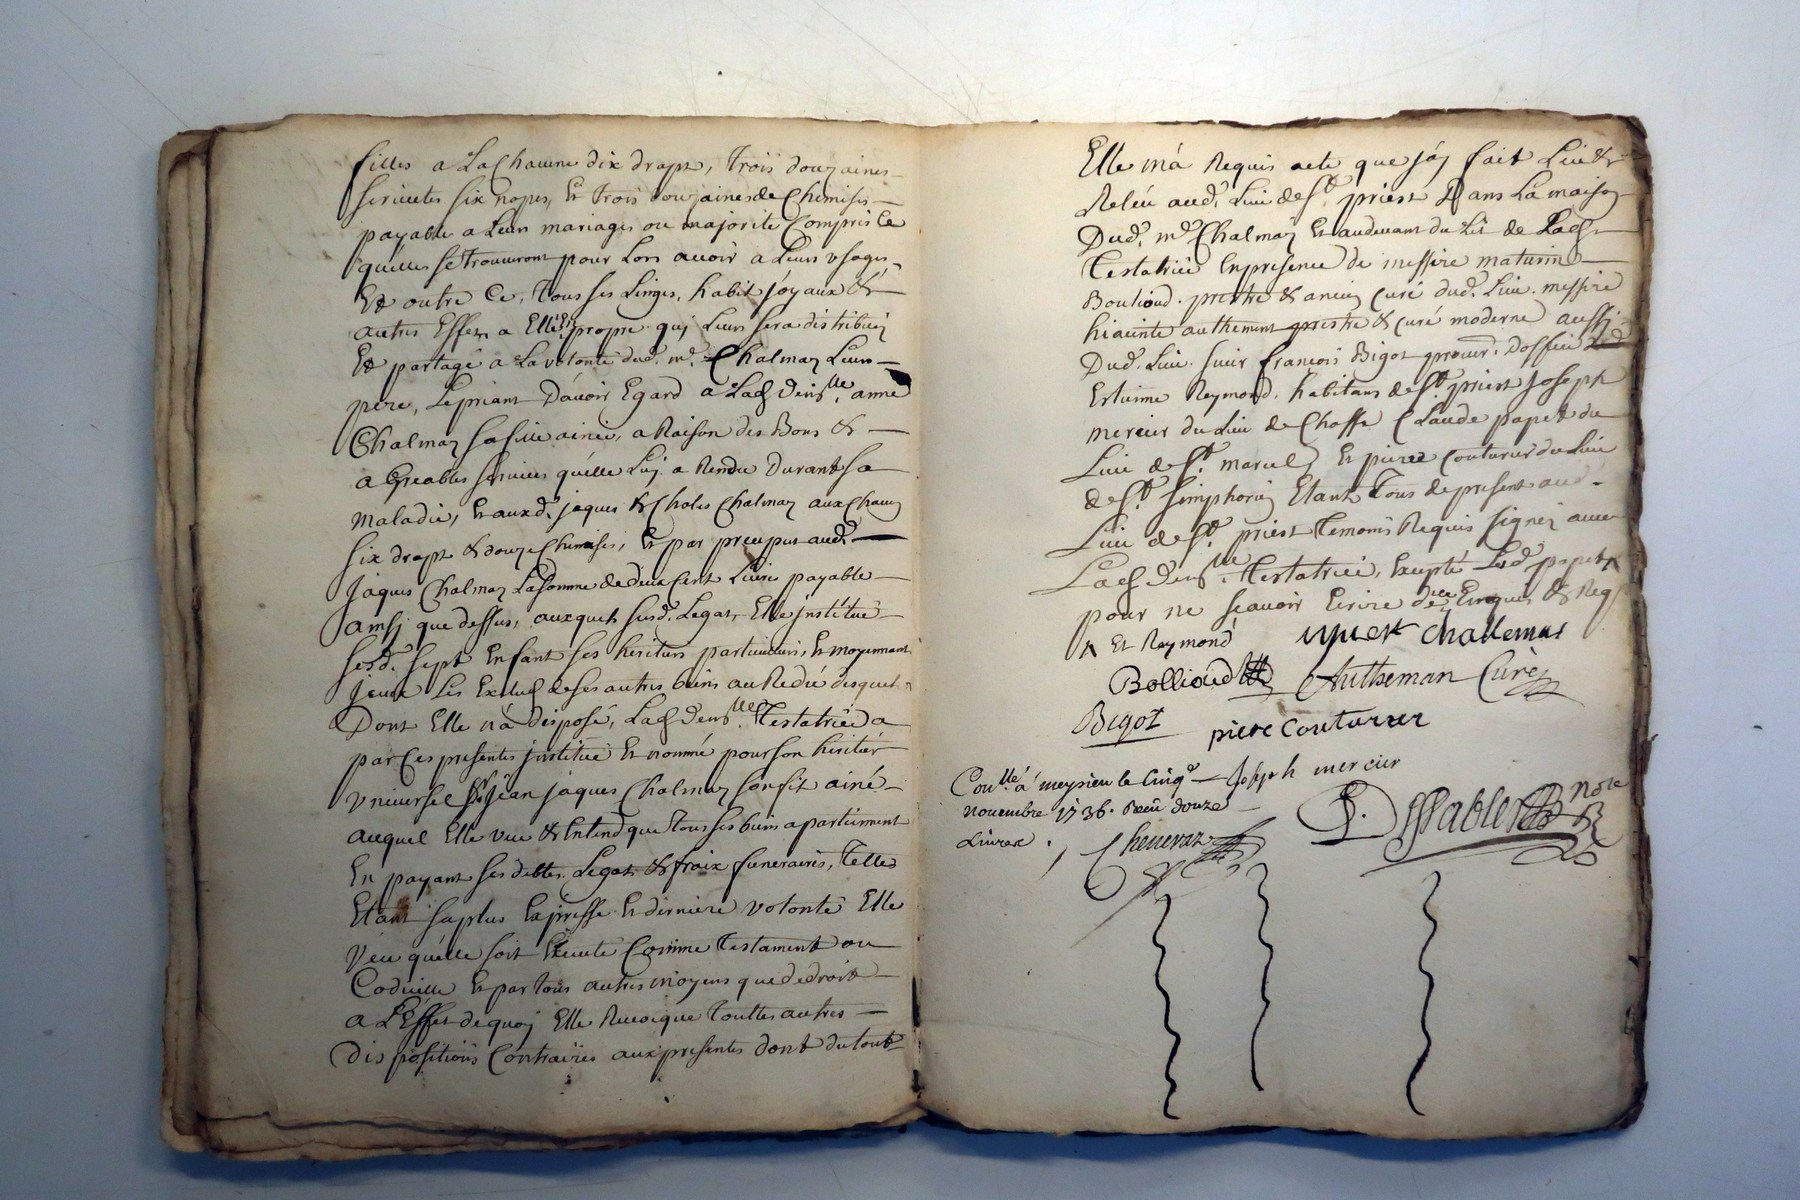 filles a La Chacune dix draps, trois douzaines
servietes six napes, Et trois douzaines de Chemises
payable a Leur mariages ou majorité Compris Ce
quelles se trouveront pour Lors avoir a Leurs usages
Et outre Ce, tous ses Linges, habit joyaux &
autres Effets a Elle propre quj Leurs sera distribuéz
Et partagé a La volonté dud. mr. Chalmaz Leur
pere, Le priant D'avoir Egard a Lad. demlle. anne
Chalmaz sa fille ainée, a Raison des Bons &
agreables services quélle Luj a Rendu Durant sa
maladie, Et auxd. jaques & Chales Chalmaz aux Chacun
six drapt & douze Chemises, Et par preciput aud.
Jaques Chalmaz La somme de deux Cent Livres payable
ainsj que dessus, auxquels susd. Legat, Elle institue
sesd. sept Enfant ses heritiers particuliers, Et moyennant
jeceux Les Exclud de ses autres biens au Redu desquels
Dont Elle n'a disposé, Lad. demlle. Testatrice a
par Ces presentes institué Et nommé pour son heritier
universel Sr jean jaques Chalmaz son fils ainé
auquel Elle veu & Entend que tous ses biens apartiennent
En payant ses debtes Legats & fraix funeraires, Telle
Etant sa plus Expresse Et derniere volonté Elle
véu quélle soit Executé Comme Testament ou
Codicille Et par tous autres moyens que de droit
a L'Effet dequoj Elle Revoique touttes autres
dispositions Contraires aux presentes dont du tout
Elle m'a Requis acte que j'ay fait Lu &
Reléu aud. Lieu de St. priest Dans La maison
Dud. mr. Chalmaz Et audevant du Lit de Lad.
Testatrice En presence de messire maturin
Boulioud prestre & ancien curé dud. Lieu messire
hiacinte authemant prestre & curé moderne aussj
Dud. Lieu sieur françois Bigot procur. D'office
Estienne Reymond, habitans de St. priest Joseph
mercier du Lieu de Choffe Claude papet du
Lieu de St. marcel Et pierre Couturier du Lieu
de St. simphorien Etant Tous de present aud.
Lieu de St. priest Temoins Requis signez avec
Lad. demlle. Testatrice, Excepté Led. papet
pour ne scavoir Ecrire de ce Enquis & Req
Et Reymond
Challemas
Bollioud Autheman Curé
Bigot
piere Couturier
Conllé á meysieu le Cinqe Joseph mercier
novembre 1736. Receu douze
Livres.
Cheneraz